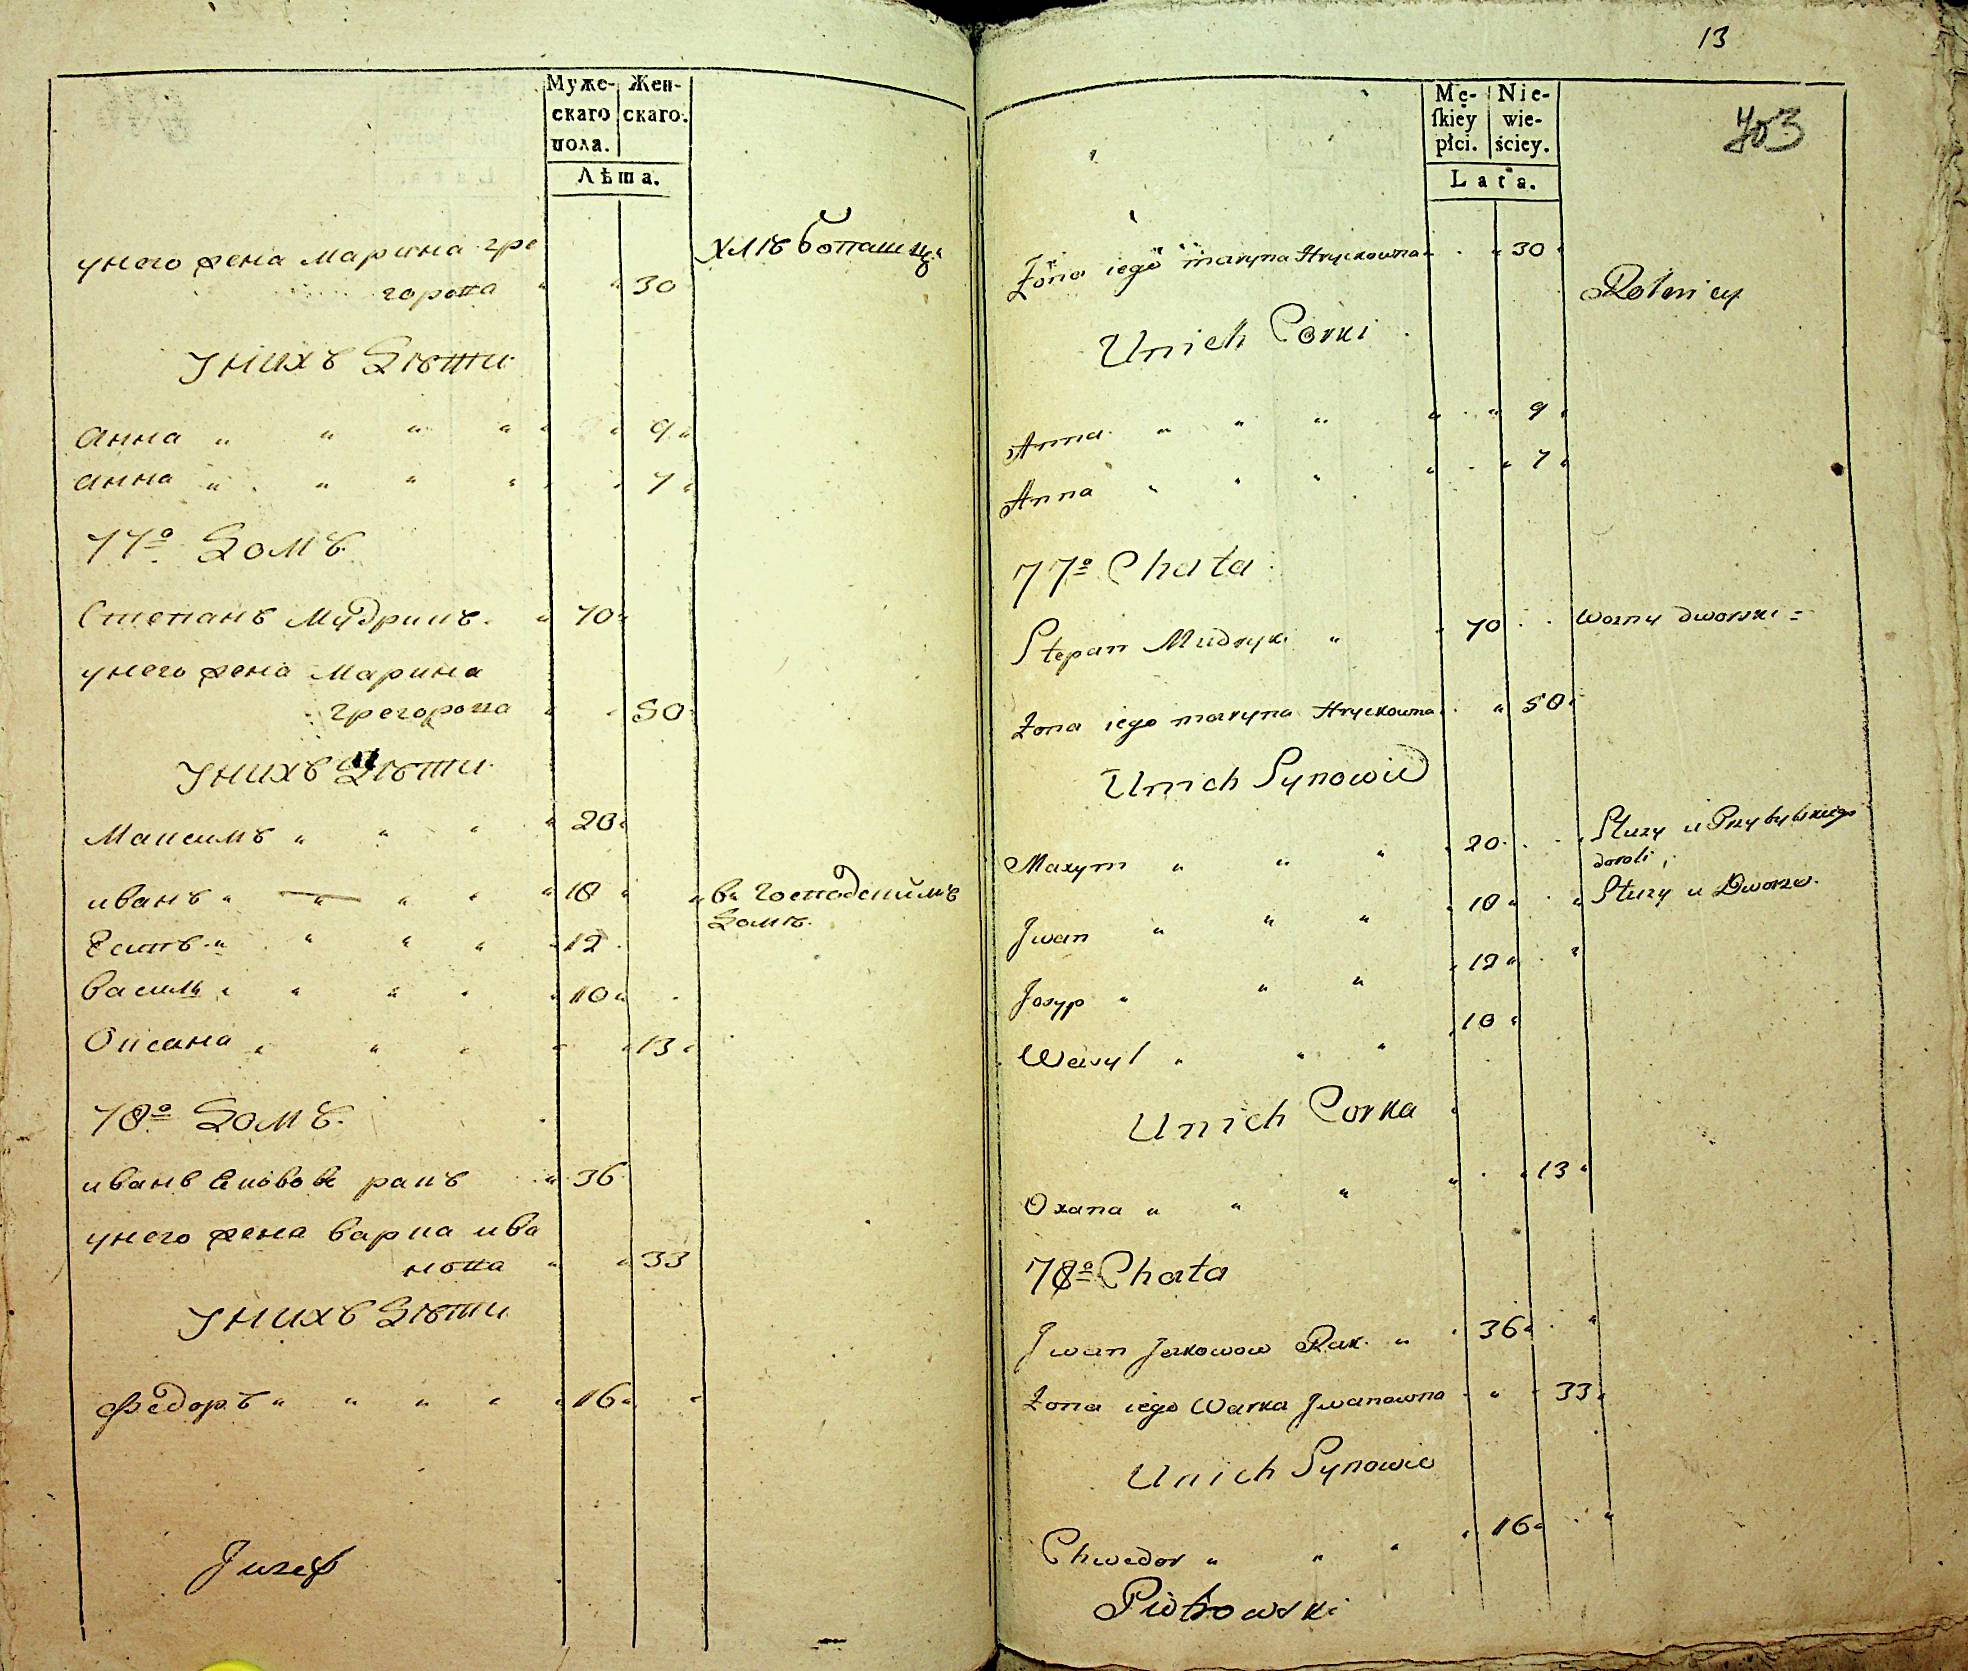 Муже-
скаго
пола.
Жен-
скаго.
Лѣта.
унего жена Марина гре
горова " " 30
хлѣбопашцъ
Унихъ Дѣти
Анна " " " " " " 9 "
Анна " " " " " " 7 "
77º Домъ.
Степанъ Мудрикъ. " 70 "
унего жена Марина
Грегорова " " 50
Унихъ Дѣти
Максимъ " " " " 20 "
иванъ " " " " " 18 " " ва Господскимъ
Домѣ.
Есипъ " " " " " 12
Василь " " " " " 10 "
Оксана " " " " " 13 "
78º Домъ.
иванъ Яковов ракъ " 36
унего жена варка ива
нова " " 33
Унихъ Дѣти
Федоръ " " " " " 16 " "
Juzef
13
703
Mę-
ſkiey
płci.
Nie-
wie-
ściey.
Lata.
Żona iego maryna Hryckowna " " 30 "
Rolnicy
Unich Corki
Anna " " " " " 9 "
Anna " " " " " 7 "
77º Chata
Stepan Mudryk " " 70 Wozny dworski =
Żona iego maryna Hryckowna " 50 "
Unich Synowie
Maxym " " " " 20 " Służy u Przybylskiego
Jwan " " " " 18 " " Służy u Dworze.
Josyp " " " " 12 " "
Wasyl " " " " 10 "
Unich Corka
Oxana " " " " " 13 "
78º Chata
Jwan Jakowow Rak " " 36 " "
Żona iego Warka Jwanowna " " 33 "
Unich Synowie
Chwedor " " " " 16 " "
Piotrowski